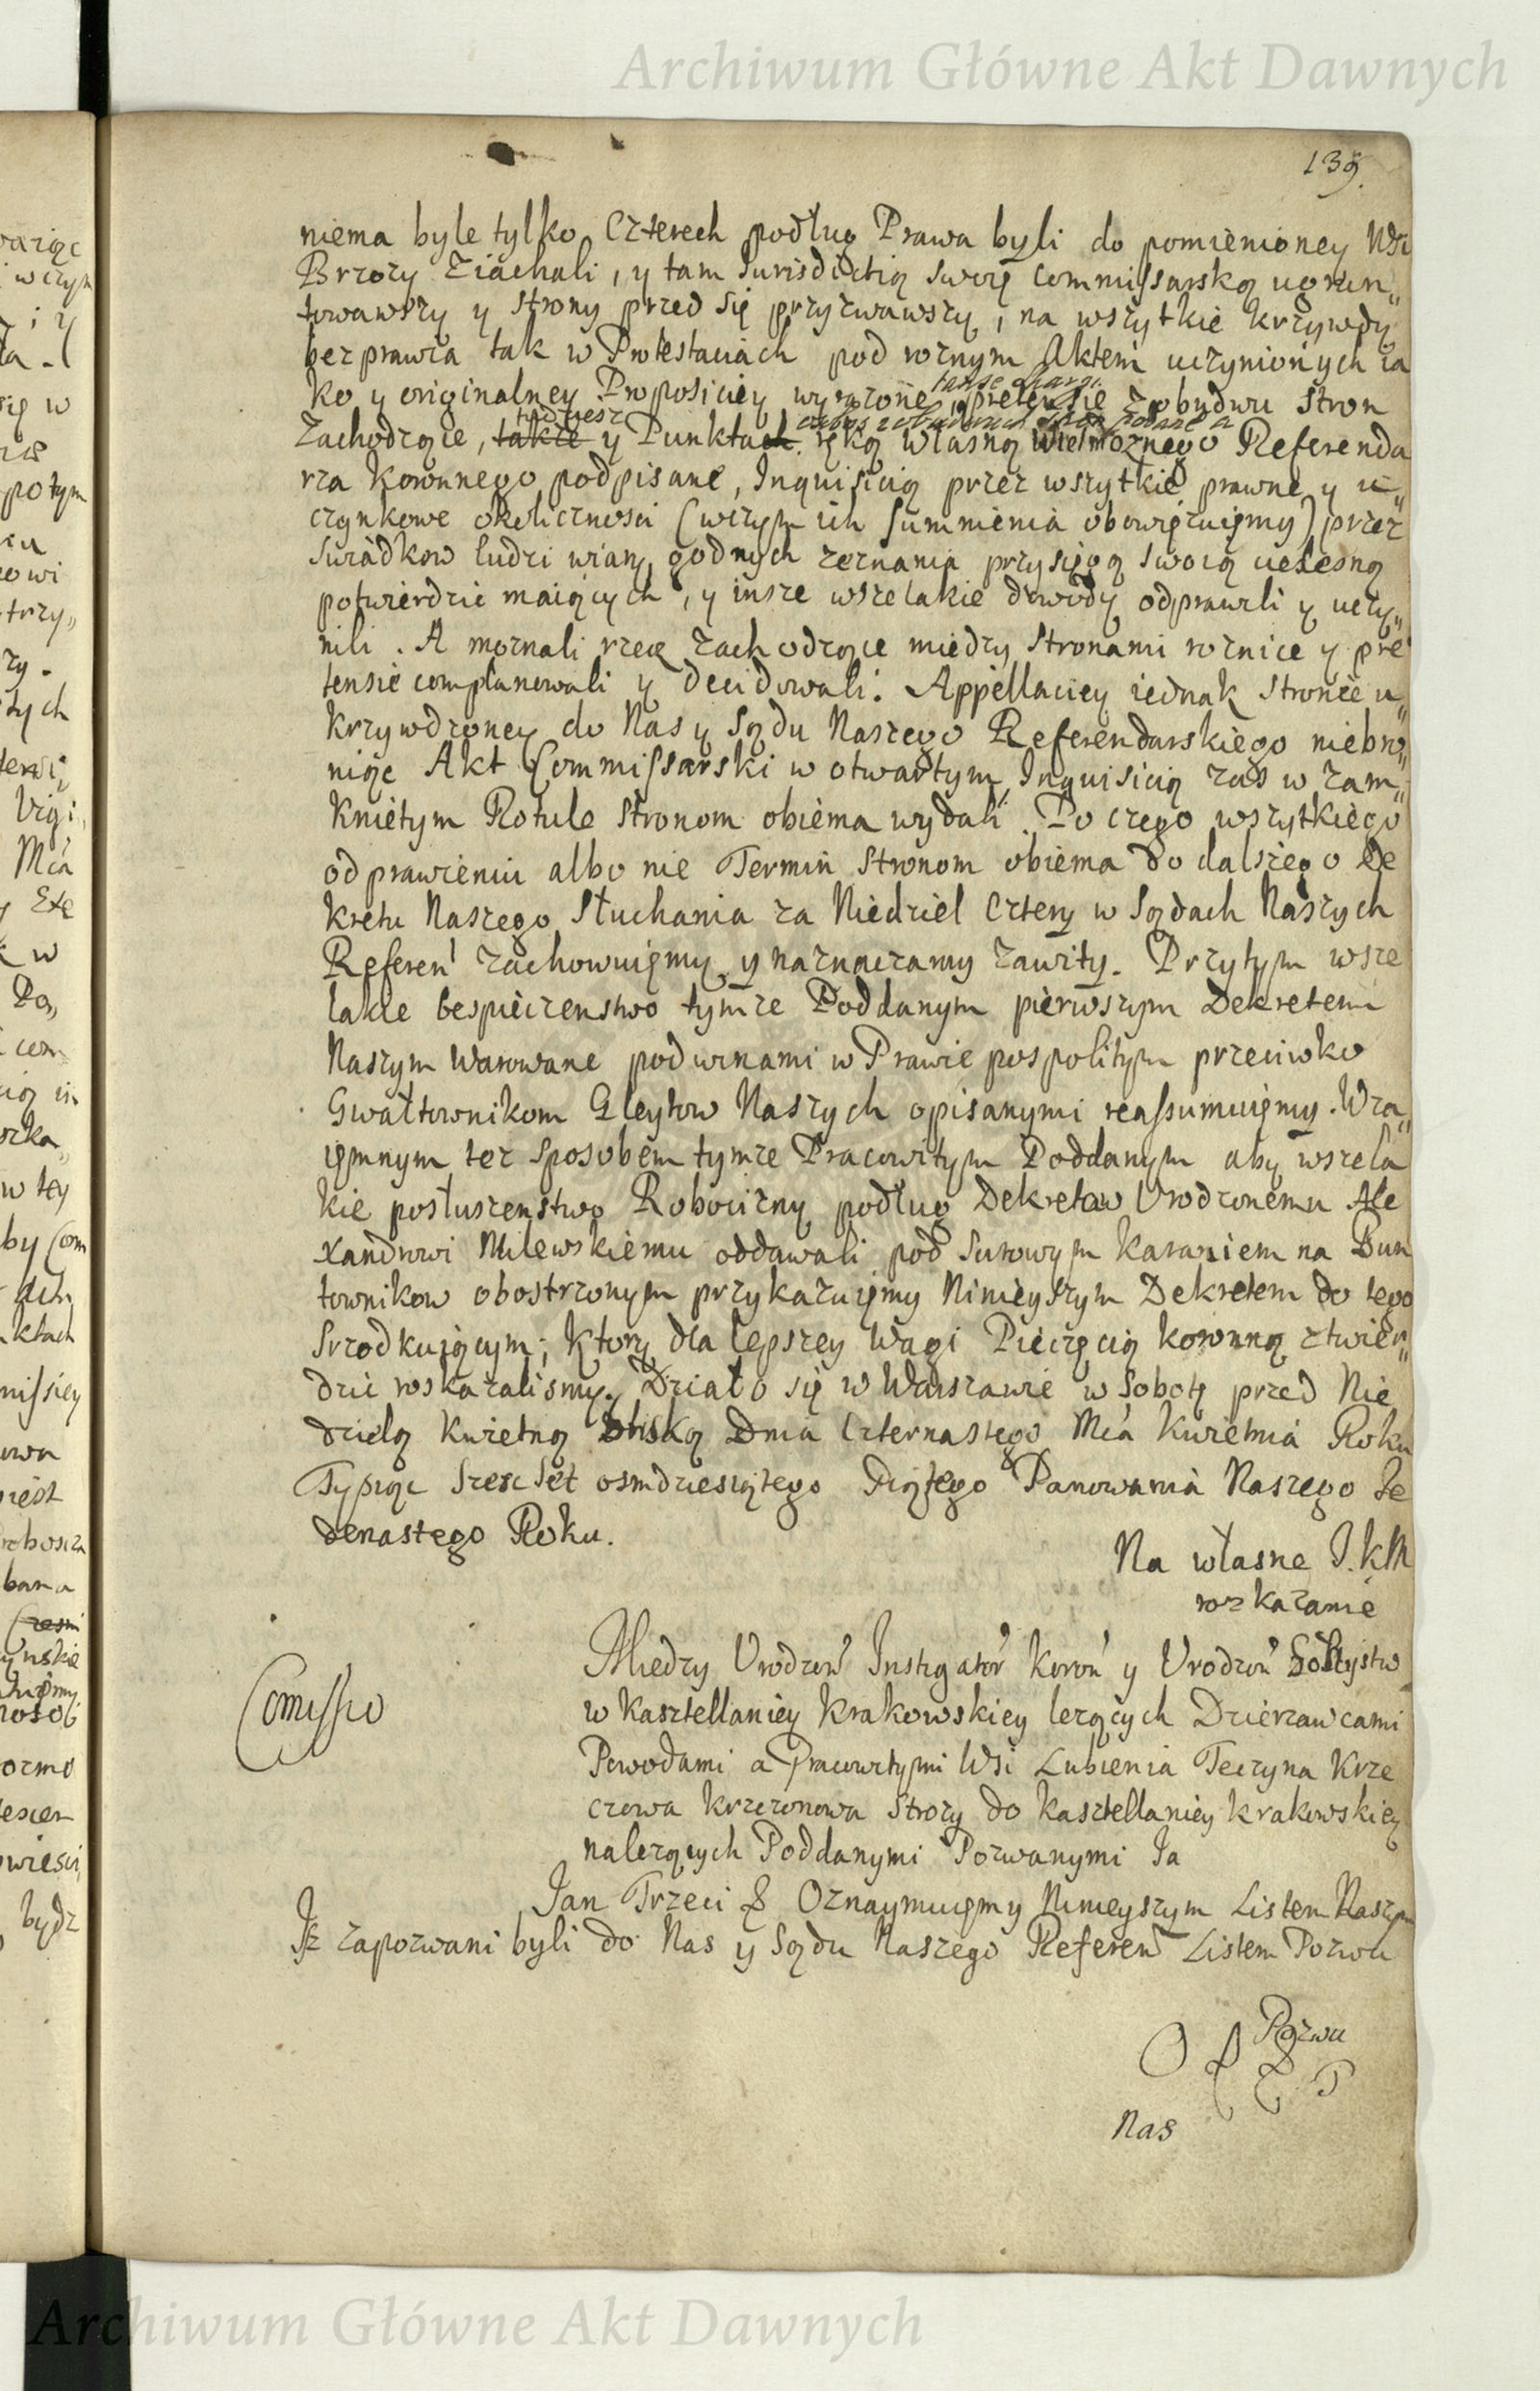 Archiwum Główne Akt Dawnych
139.
niema byle tylko Czterech podług Prawa byli do pomienioney Wsi
Brzozy Ziachali, y tam Iurisdictią swoię Commissarską ugrun„
towawszy y strony przed się przyzwawszy, na wszytkie krzywdy
bezprawia tak w Protestaciach pod roznym Aktem uczynionych ia
ko y originalney Proposiciey wyrazone, pretensie z obudwu Stron
tudziesz
Zachodzące, takze y Punktach ręką własną Wielmoznego Referenda
rza Koronnego podpisane, Inquisicią przez wszytkie prawne y u„
czynkowe okolicznosci (wczym ich sumnienia obowięzuięmy) przez
Swiadkow ludzi wiary godnych zeznania przysięgą swoią cielesną
potwierdzic maiących, y insze wszelakie dowody odprawili y uczy„
nili. A moznali rzecz zachodzące miedzy Stronami roznice y pre
tensie complanowali y decidowali. Appellaciey iednak stronie u„
krzywdzoney do Nas y Sądu Naszego Referendarskiego niebro„
niąc Akt Commissarski w otwartym, Inquisicią zas w zam„
knietym Rotule Stronom obiema wydali. Po czego wszytkiego
odprawieniu albo nie Termin Stronom obiema do dalszego De
kretu Naszego Słuchania za Niedziel Cztery w Sądach Naszych
Referen zachowuięmy y naznaczamy zawity. Przytym wsze
lakie bespieczenstwo tymze Poddanym pierwszym Dekretem
Naszym Warowane pod winami w Prawie pospolitym przeciwko
Gwałtownikom Gleytow Naszych opisanymi reassumuięmy. Wza„
ięmnym tez sposobem tymze Pracowitym Poddanym aby wszela
kie posłuszenstwo Robocizny podług Dekretow Urodzonemu Ale
xandrowi Milewskiemu oddawali pod surowym karaniem na Bun
townikow obostrzonym przykazuięmy Ninieyszym Dekretem do tego
Srzodkuiącym; Ktory dla lepszey Wagi Pieczęcią koronną ztwier„
dzic roskazalismy. Działo się w Warszawie w Sobotę przed Nie
dzielą Kwietną bliską Dnia Czternastego Mca Kwietnia Roku
Tysiąc Szescset osmdziesiątego Piątego Panowania Naszego Je
denastego Roku.
Na własne J.K.M
rozkazanie
Comissio
Miedzy Urodzon Instigator Koron y Urodzon Sołtystw
w Kasztellaniey Krakowskiey lezących Dzierzawcami
Powodami a Pracowitymi Wsi Lubienia Teczyna Krze
czowa Krzczonowa Strozy do Kasztellaniey Krakowskiey
nalezących Poddanymi Pozwanymi Ja
Jan Trzeci & Oznaymuięmy Ninieyszym Listem Naszym
Jz zapozwani byli do Nas y Sądu Naszego Referen Listem Pozwu
Pozwu
Nas
Archiwum Główne Akt Dawnych